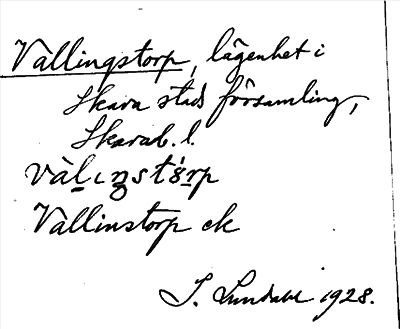 Vällingstorp, lägenhet i
Skara stads församling,
Skarab. l.
vàlıŋstɷ́rp
Vällinstorp ek
S. Lundahl 1928.